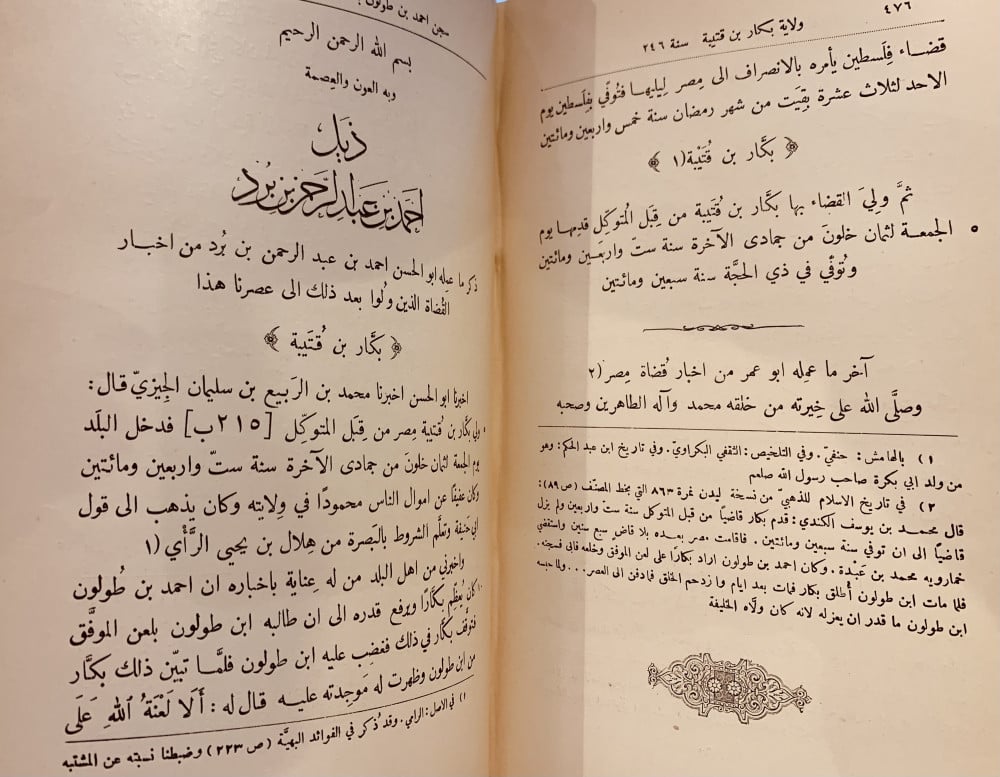 ٤٧٦
ولاية بكار بن قتيبة سنة ٢٤٦
قضاء فِلَسطين يأمره بالانصراف الى مِصر لِيليها فتُوفّي بفِلَسطين يوم
الاحد لثلاث عشرة بقِيَت من شهر رمضان سنة خمس واربعين ومائتين
﴿ بكَّار بن قُتَيْبة(١ ﴾
ثمَّ ولِيَ القضاء بها بكَّار بن قُتَيبة من قِبَل المُتوكِّل قدِمها يوم
الجمعة لثمان خلونَ من جمادى الآخرة سنة ستّ واربَعين ومائتين
٥
وتُوفّي في ذي الحجَّة سنة سبعين ومائتين
آخر ما عمِله ابو عمر من اخبار قُضاة مِصر(٢
وصلَّى الله على خِيرته من خلقه محمد وآله الطاهرين وصحبه
١) بالهامش: حنفيّ. وفي التلخيص: الثقفي البكراويّ. وفي تاريخ ابن عبد الحكم: وهو
من ولد ابي بكرة صاحب رسول الله صلعم
٢) في تاريخ الاسلام للذهبيّ من نسخة ليدن نمرة ٨٦٣ التي بخط المصنّف (ص ٨٩):
قال محمد بن يوسف الكندي: قدم بكار قاضيًا من قبل المتوكل سنة ست واربعين ولم يزل
قاضيًا الى ان توفي سنة سبعين ومائتين. فاقامت مصر بعده بلا قاضٍ سبع سنين واستقضى
خمارويه محمد بن عَبْدة. وكان احمد بن طولون اراد بكارًا على لعن الموفّق وخلعه فابى فسجنه.
فلما مات ابن طولون أُطلق بكار فمات بعد ايام وازدحم الخلق فادفن الى العصر... ولما حبسه
ابن طولون ما قدر ان يعزله لانه كان ولّاه الخليفة
سجن احمد بن طولون
بسم الله الرحمن الرحيم
وبه العون والعِصمة
ذَيل
احمَد بن عَبد الرّحمن بن بُرد
ذكر ما عمِله ابو الحسن احمد بن عبد الرحمن بن بُرد من اخبار
القُضاة الذين وُلوا بعد ذلك الى عصرنا هذا
﴿ بكَّار بن قُتَيبة ﴾
اخبرنا ابو الحسن اخبرنا محمد بن الرَبيع بن سليمان الجِيزيّ قال:
ولي بكَّار بن قُتيبة مِصر من قِبَل المتوكِّل [٢١٥ب] فدخل البلَد
يوم الجمعة لثمان خلونَ من جمادى الآخرة سنة ستّ واربعين ومائتين
وكان عفيفًا عن اموال الناس محمودًا في وِلايته وكان يذهب الى قول
ابي حَنيفة وتعلَّم الشروط بالبَصرة من هِلال بن يحيى الرَّأْي(١
واخبرني من اهل البلد من له عِناية باخباره ان احمد بن طُولون
١٠ كان يُعظِّم بكَّارًا ويرفع قدره الى ان طالبه ابن طولون بلعن الموفَّق
فتوقَّف بكَّار في ذلك فغضِب عليه ابن طولون فلمَّا تبيّن ذلك بكَّار
من ابن طولون وظهرت له مَوجِدته عليه قال له: أَلَا لَعْنَةُ ٱللّٰهِ عَلَى
١) في الاصل: الرامي. وقد ذُكر في الفوائد البهيَّة (ص ٢٢٣) وضبطنا نسبته عن المشتبه